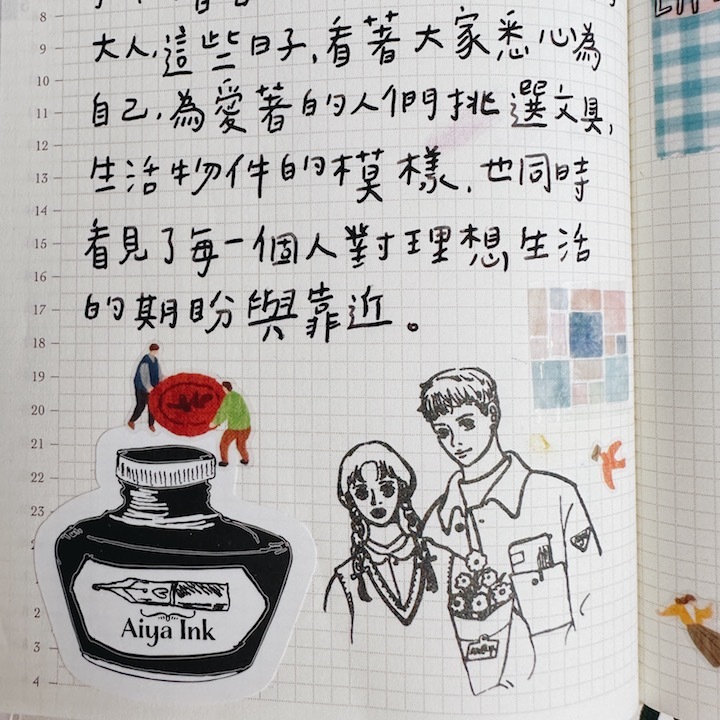 大人,這些日子,看著大家悉心為
自己,為愛著的人們挑選文具,
生活物件的模樣,也同時
看見了每一個人對理想生活
的期盼與靠近。
8
9
10
11
12
13
14
15
16
17
18
19
20
21
22
23
1
2
3
4
Aiya Ink